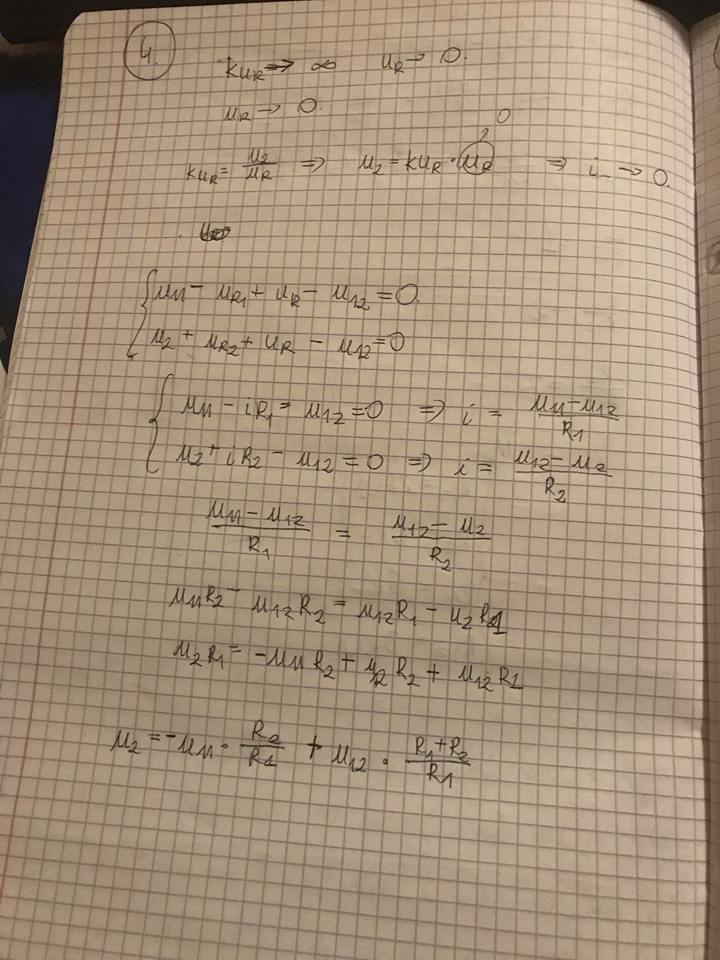 4.
k u_R → ∞   u_R → 0.
u_R → 0.
k u_R = u_2/u_R ⇒ u_2 = k u_R · u_R ⇒ i_ → 0.
0
{ u_11 - u_R1 + u_R - u_12 = 0.
u_2 + u_R2 + u_R - u_12 = 0
{ u_11 - iR_1 = u_12 = 0 ⇒ i = (u_11 - u_12)/R_1
u_2 + iR_2 - u_12 = 0 ⇒ i = (u_12 - u_2)/R_2
(u_11 - u_12)/R_1 = (u_12 - u_2)/R_2
u_11 R_2 - u_12 R_2 = u_12 R_1 - u_2 R_1
u_2 R_1 = -u_11 R_2 + u_12 R_2 + u_12 R_1
u_2 = -u_11 · R_2/R_1 + u_12 · (R_1 + R_2)/R_1